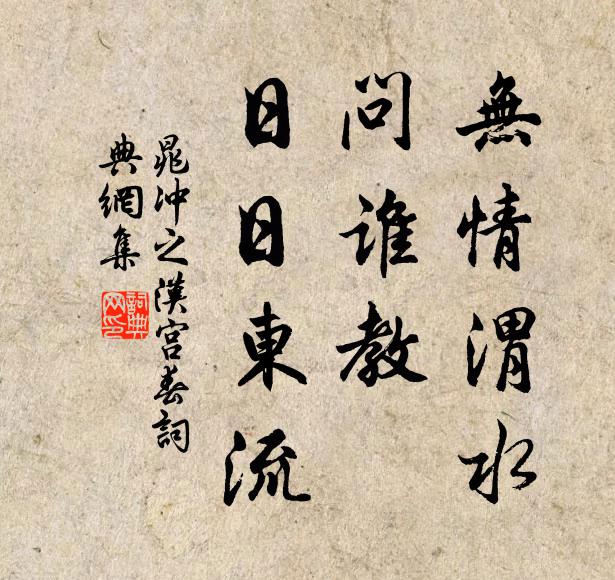 無情渭水
問誰教
日日東流
晁冲之漢宮春詞
典網集
詞典网印